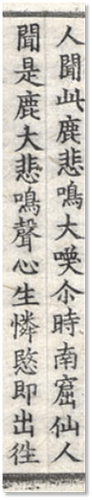 人聞此鹿悲鳴大㗛尒時南窟仙人
聞是鹿大悲鳴聲心生憐愍即出往